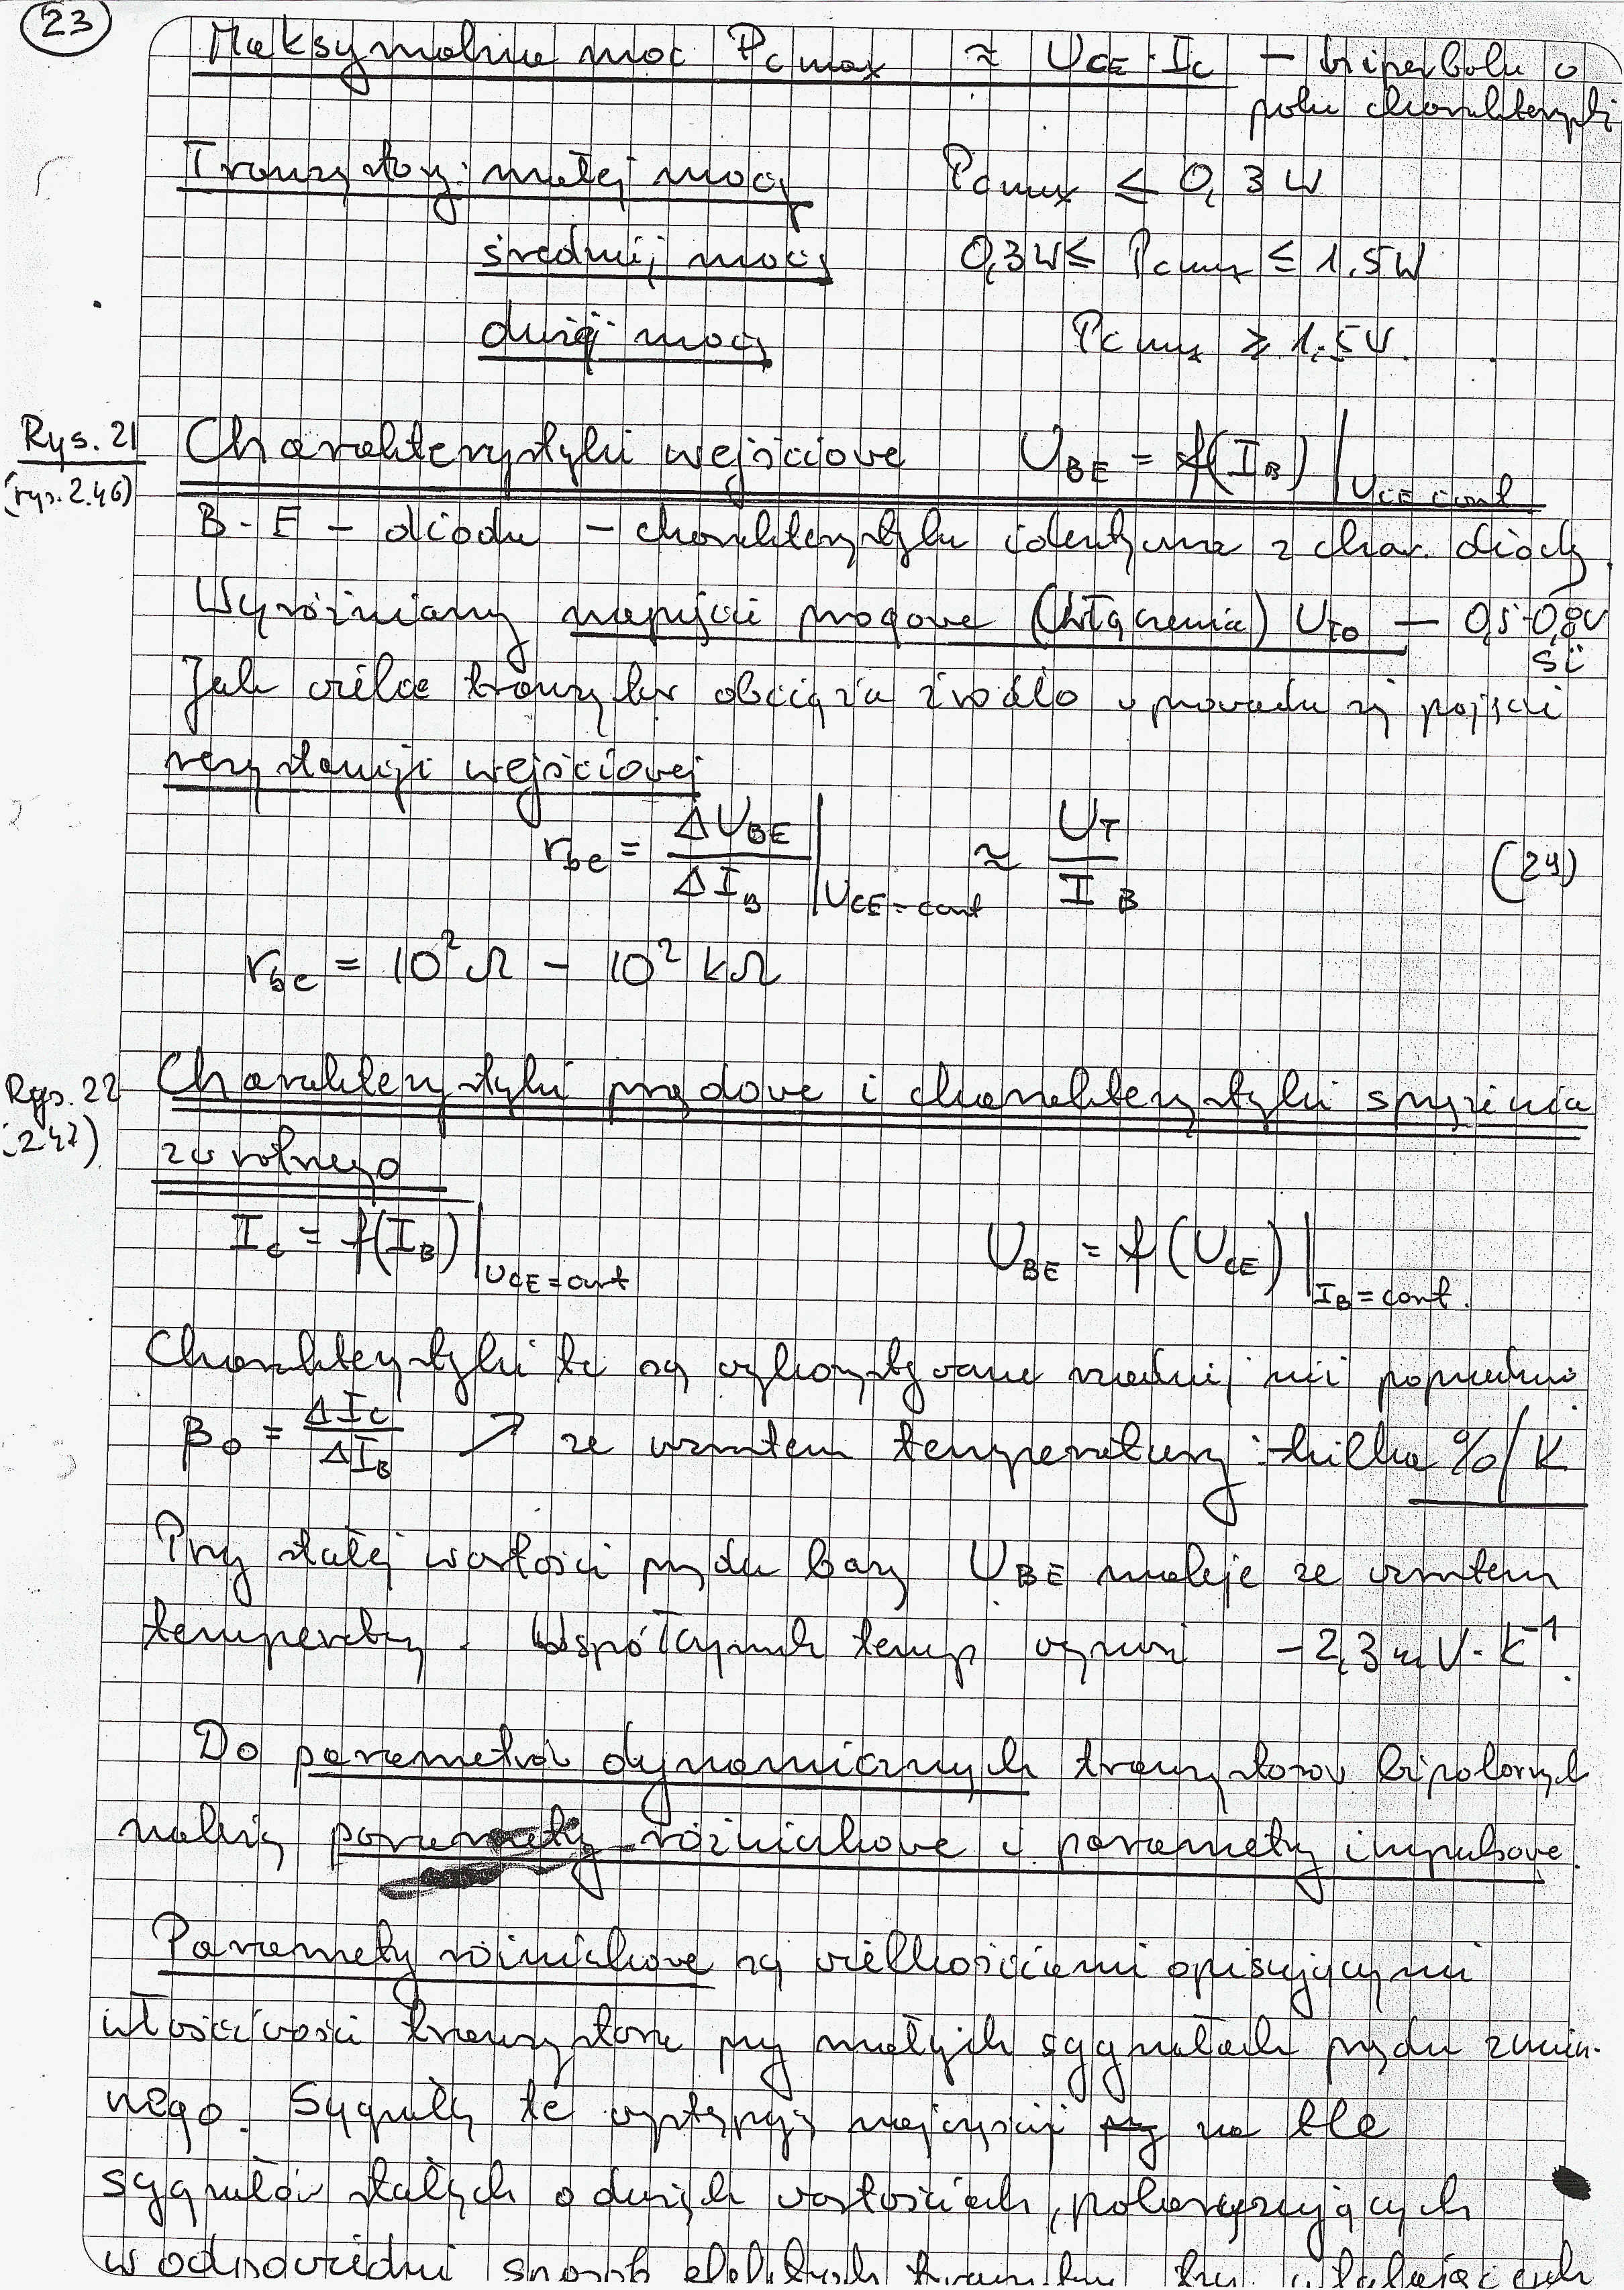 23
Maksymalna moc Pcmax ≈ UCE·IC – hiperbola w
polu charakterystyk
Tranzystory: małej mocy Pcmax ≤ 0,3W
średniej mocy 0,3W≤ Pcmax ≤ 1.5W
dużej mocy Pcmax ≥ 1.5V.
Rys. 21
(rys. 2.46)
Charakterystyki wejściowe UBE = f(IB) | UCE const
B-E – dioda – charakterystyka identyczna z char. diody.
Wyróżniamy napięcie progowe (włączenia) UTO – 0,5-0,8V
Si
Jak wielce tranzystor obciąża źródło wprowadza się pojęcie
rezystancji wejściowej
rbe = ΔUBE / ΔIB | UCE=const ≈ UT / IB (24)
rbe = 10² Ω – 10² kΩ
Rys. 22
(2.47)
Charakterystyki prądowe i charakterystyki sprzężenia
zwrotnego
IC = f(IB) | UCE=const UBE = f(UCE) | IB=const.
Charakterystyki te są wykorzystywane rzadziej niż poprzednio.
β0 = ΔIC / ΔIB ↗ ze wzrostem temperatury: kilka %/K
Przy stałej wartości prądu bazy UBE maleje ze wzrostem
temperatury. Współczynnik temp wynosi –2,3mV·K⁻¹.
Do parametrów dynamicznych tranzystorów bipolarnych
należą parametry różniczkowe i parametry impulsowe.
Parametry różniczkowe są wielkościami opisującymi
właściwości tranzystora przy małych sygnałach prądu zmien-
nego. Sygnały te występują najczęściej na tle
sygnałów stałych o dużych wartościach, polaryzujących
w odpowiedni sposób elektrody tranzystora